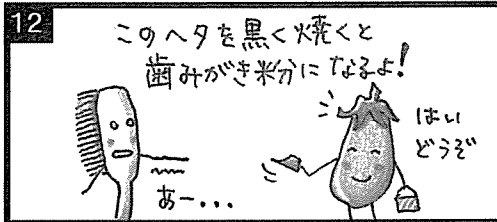 12
このヘタを黒く焼くと
歯みがき粉分になるよ!
はい
どうぞ
あー・・・